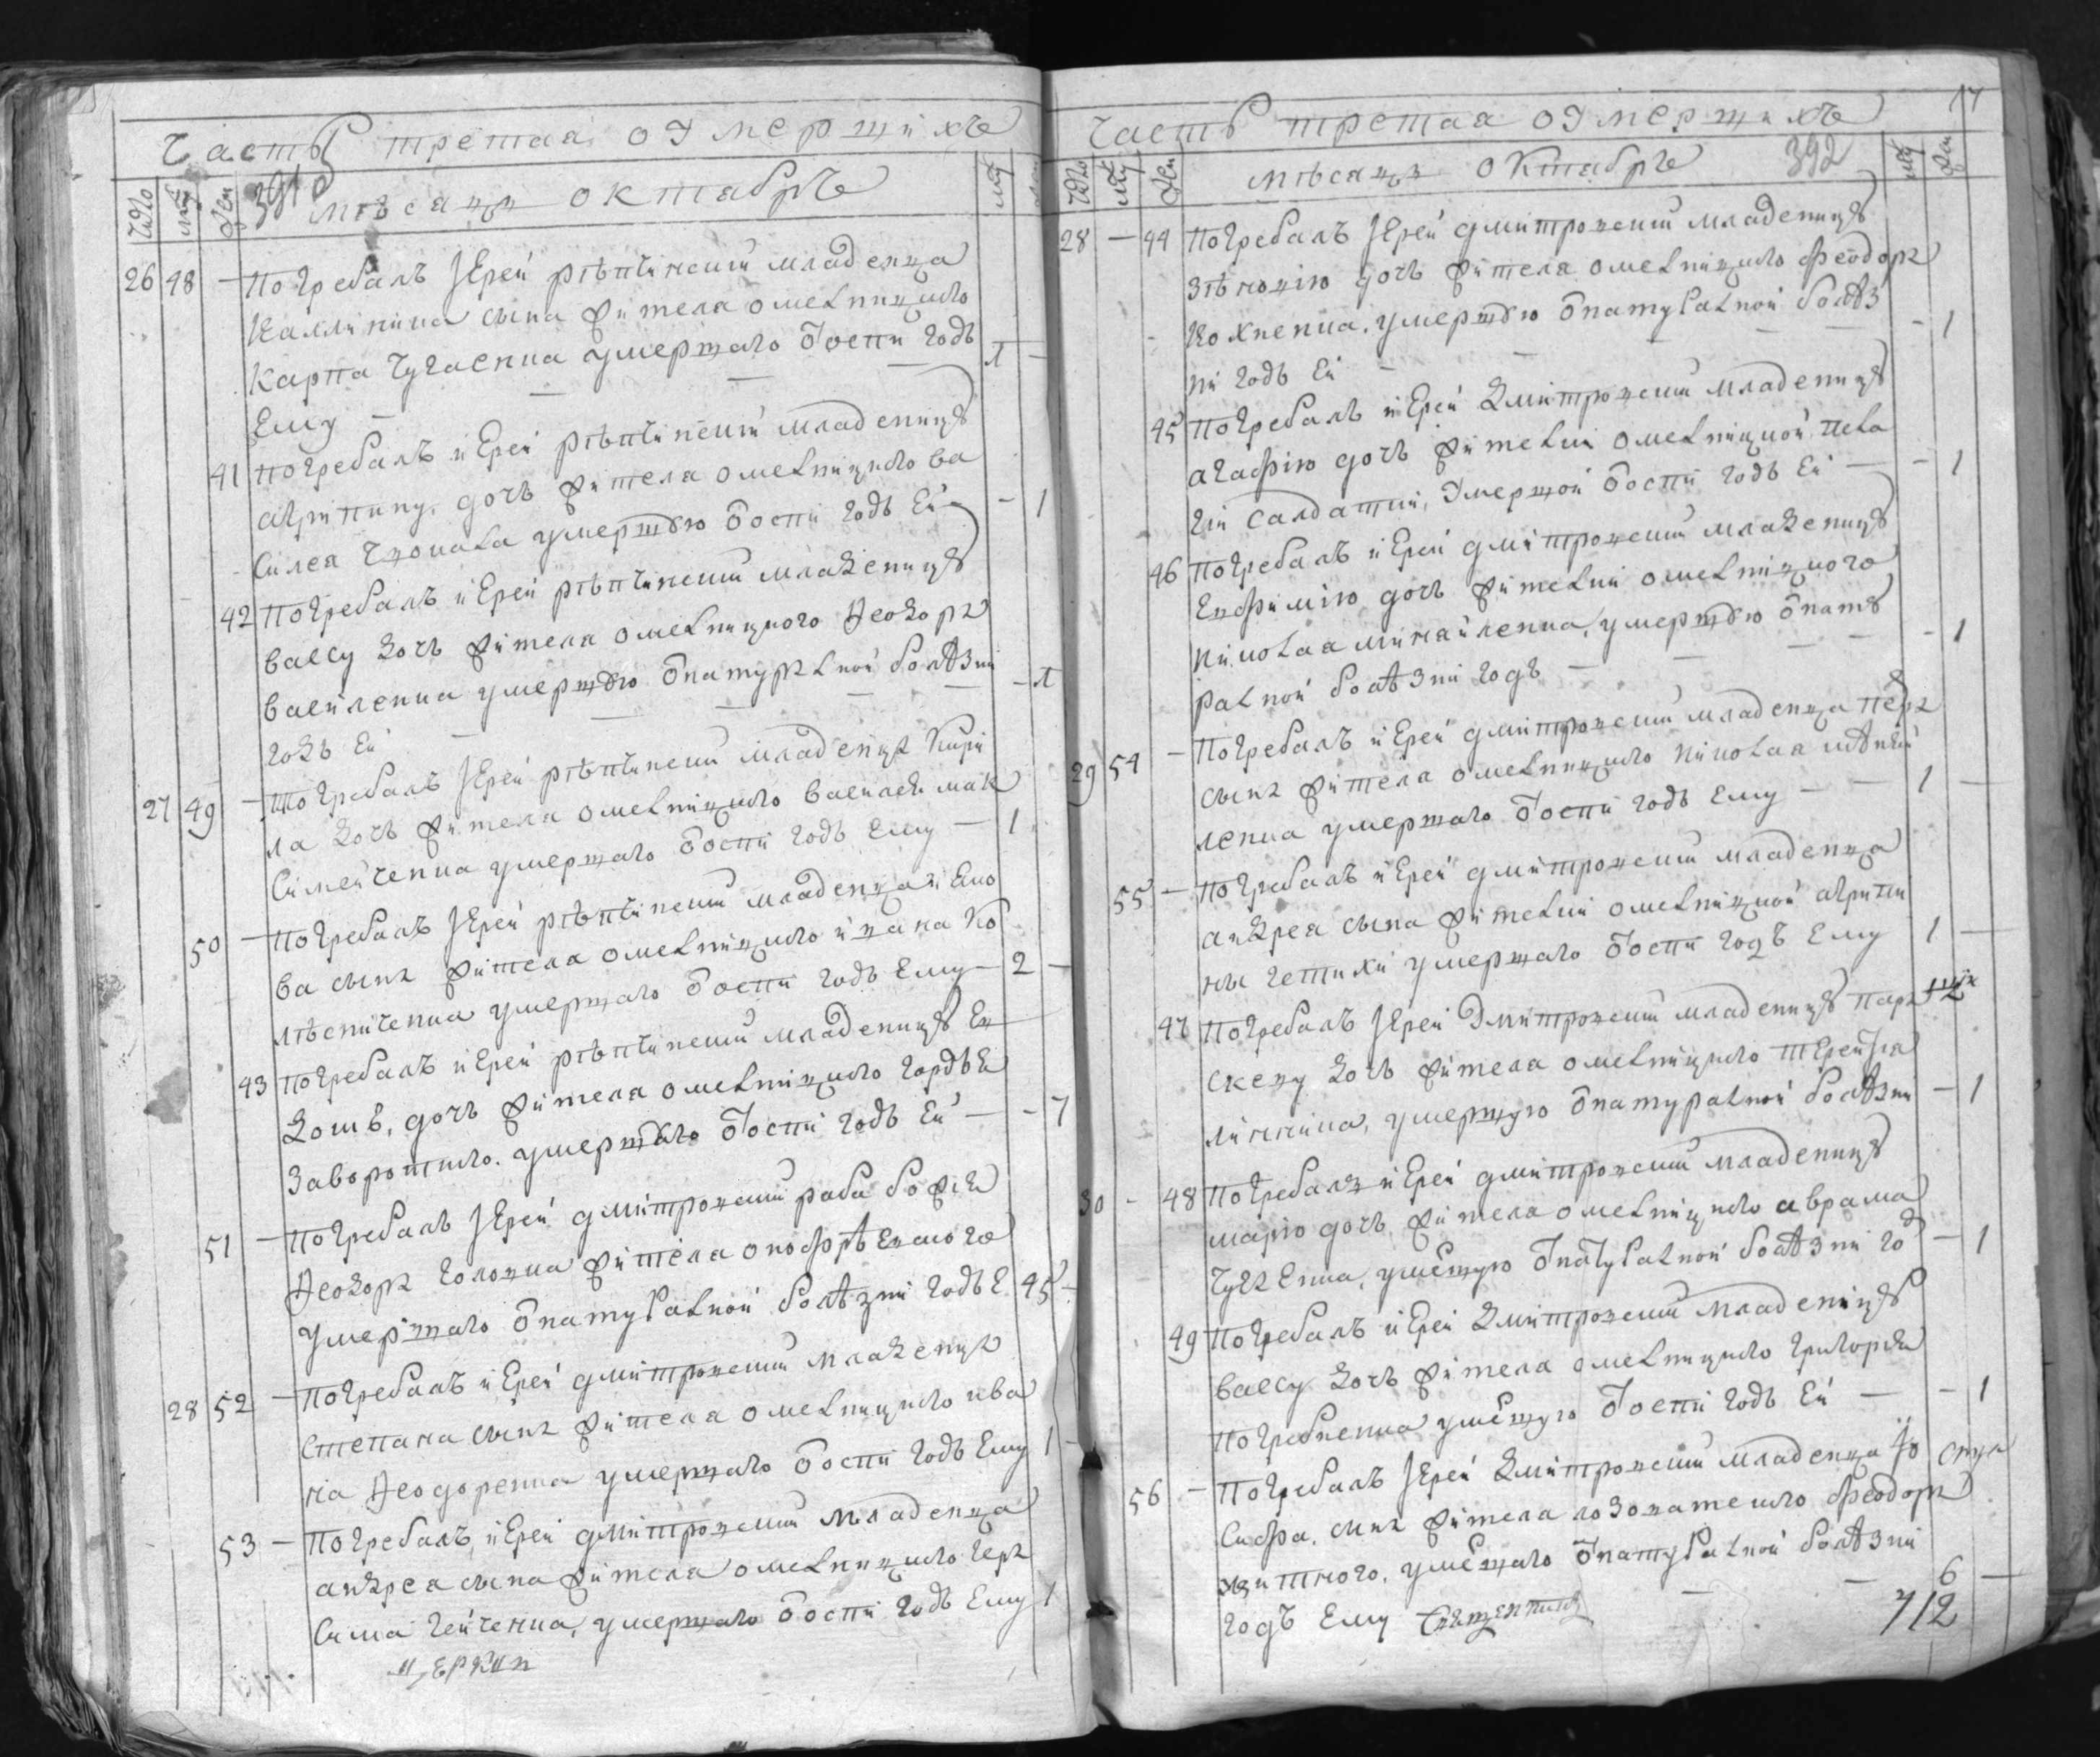 Часть третая оумершихъ
391
мѣсацъ октабръ
Число муж жен муж жен
26 48 — Погребалъ Іерей рѣпчинскій младенца
Каллиника сына жителя омелницкого
Карпа Чугаенка умершаго Ѿоспи годъ 1 —
Ему —
41 погребалъ иерей рѣпчинскій младеницу
акрипину, дочь жителя омелницкого ва
силея умершую Ѿоспи годъ Ей — 1
42 Погребалъ иерей рѣпчинскій младеницу
вассу дочь жителя омелницкого Ѳеодора
василенка умершую Ѿнатуралной болѣзни
годъ Ей — 1
27 49 — Погребалъ Іерей рѣпчинскій младенца Кири
ла дочь жителя омелницкого василея мак
сименченка умершаго Ѿоспи годъ Ему — 1
50 — Погребалъ Іерей рѣпчинскій младенца Яко
ва сына жителя омелницкого ивана Ко
лѣсниченка умершаго Ѿоспи годъ Ему — 2 —
43 погребалъ иерей рѣпчинскій младеницу Ев
докію, дочь жителя омелницкого гордѣя
Заворотного. умершую Ѿоспи годъ Ей — 7
51 — Погребалъ Іерей дмитровский раба божія
Ѳеодора головка жителя онофрѣевкого
умершаго Ѿнатуралной болѣзни годъ Е 45 -
28 52 — Погребалъ иерей дмитровский младенца
Степана сына жителя омелницкого ива
на Ѳеодоренка умершаго Ѿоспи годъ Ему 1 -
53 — Погребалъ иерей дмитровский младенца
андрея сына жителя омелницкого гера
сима умершаго Ѿоспи годъ Ему 1
Церкви
17
Часть третая оумершихъ
мѣсацъ октабръ 392
Число муж жен муж жен
28 — 44 Погребалъ Іерей дмитровский младеницу
зѣновію дочь жителя омелницкого Феодора
Кохненка, умершую Ѿнатуралной болѣз
ни годъ Ей — — 1
45 погребалъ иерей дмитровский младеницу
агафію дочь жителки омелницкой пела
гіи салдатки, умершой Ѿоспи годъ Ей — — 1
46 погребалъ иерей дмитровский младеницу
Евфимію дочь жителки омелницкого
николая михайленка, умершую Ѿнату
ралной болѣзни годъ — — 1
29 54 — Погребалъ иерей дмитровский младенца петра
сына жителя омелницкого николая
ленка умершаго Ѿоспи годъ Ему — 1 —
55 — погребалъ иерей дмитровский младенца
андрея сына жителки омелницкой акрипи
ны умершаго Ѿоспи годъ Ему 1 —
47 Погребалъ Іерей дмитровский младеницу пара
скеву дочь жителя омелницкого терентія
линника, умершую Ѿнатуралной болѣзни — 1
30 - 48 Погребалъ иерей дмитровский младеницу
марію дочь жителя омелницкого аврама
Чугаенка, умершую Ѿнатуралной болѣзни го — 1
49 погребалъ иерей дмитровский младеницу
вассу дочь жителя омелницкого григорія
погребненка умершую Ѿоспи годъ Ей — — 1
56 — Погребалъ Іерей дмитровский младенца Іо
сифа, сына жителя лозоватского Феодора
умершаго Ѿнатуралной болѣзни
годъ Ему — 6 —
Священникъ
712